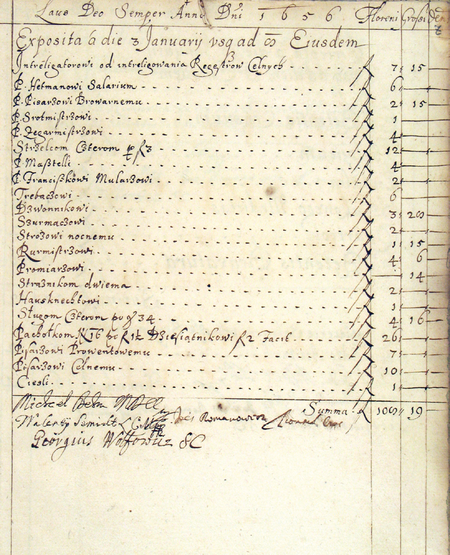 Laus Deo Semper Anno Dni 1656 Floreni Grossi
Exposita á die 3 Januarij usq ad 8 Eiusdem
Intreligatorowi od intreligowania Regestrow Celnych 7 15
P. Hetmanowi Salarium 6
P. Pisarzowi Browarnemu 2 15
P. Rotmistrzowi 1
P. Zegarmistrzowi 4
Strzelcom Czterom po f 3 12
P. Masztelli 4
P. Franciszkowi Mularzowi 2
Trebaczowi 6
Dzwonnikowi 3 20
Szurmaczowi 2
Strozowi nocnemu 1 15
Rurmistrzowi 6
Promiarzowi 4
Straznikom dwiema 2 14
Hausknechtowi 3
Slugom Czterom po g 34 4 16
Pachołkom 16 po f 1½ Dziesiątnikowi f 2 Facit 26
Pisarzowi Prowentowemu 7
Pisarzowi Celnemu 10
Cieśli 1
Summa f 109 19
Michael Behm
Walenty Szmidt Romanowicz
Georgius Wolfowicz SC